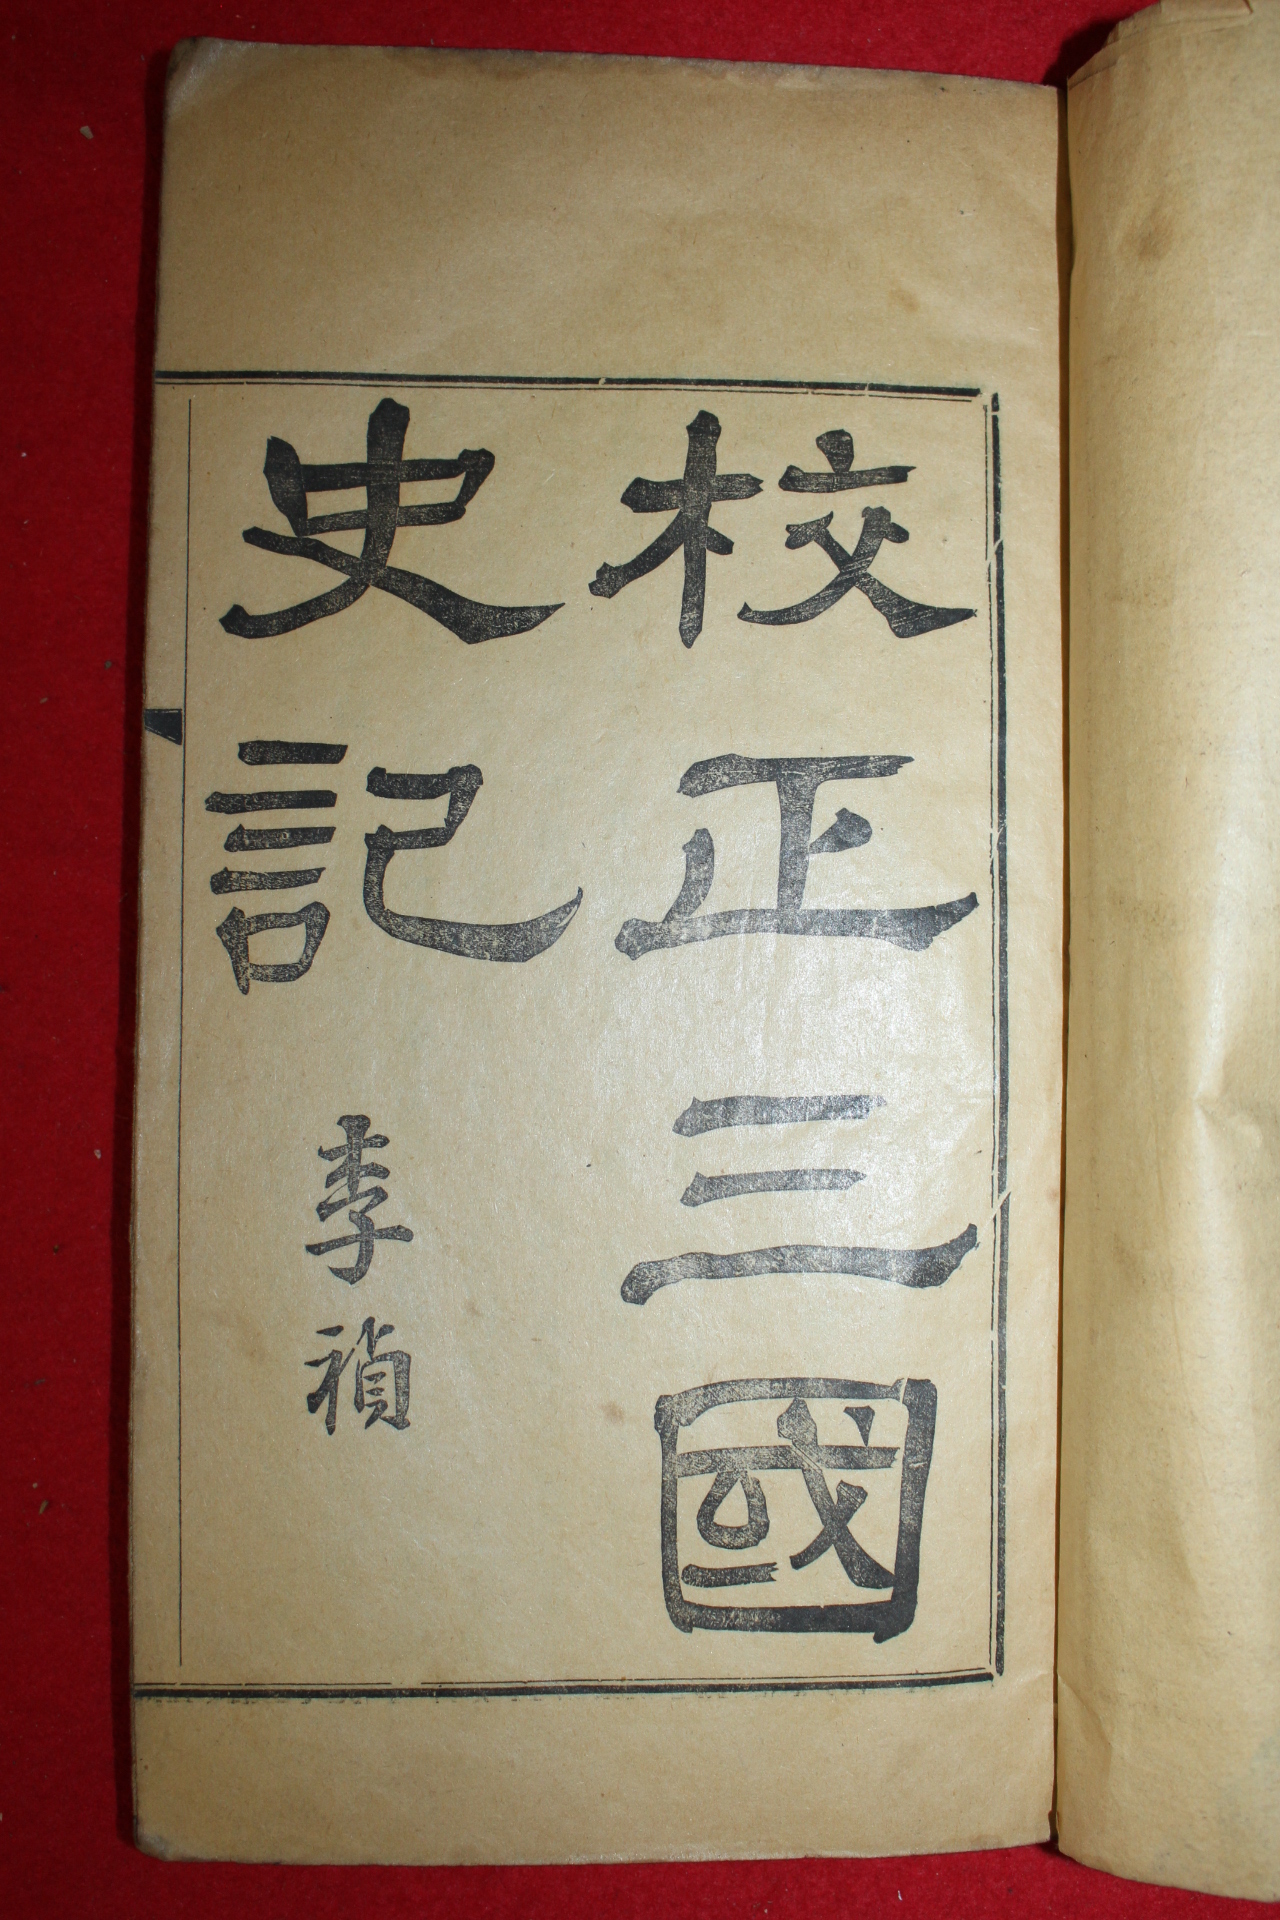 校正三國
史記 李禎